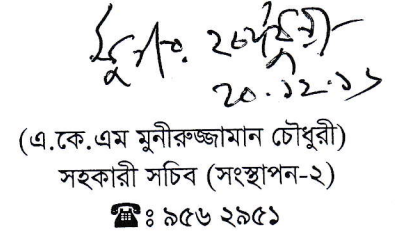 ২০.১২.১১
(এ.কে.এম মুনীরুজ্জামান চৌধুরী)
সহকারী সচিব (সংস্থাপন-২)
☎: ৯৫৬ ২৯৫১